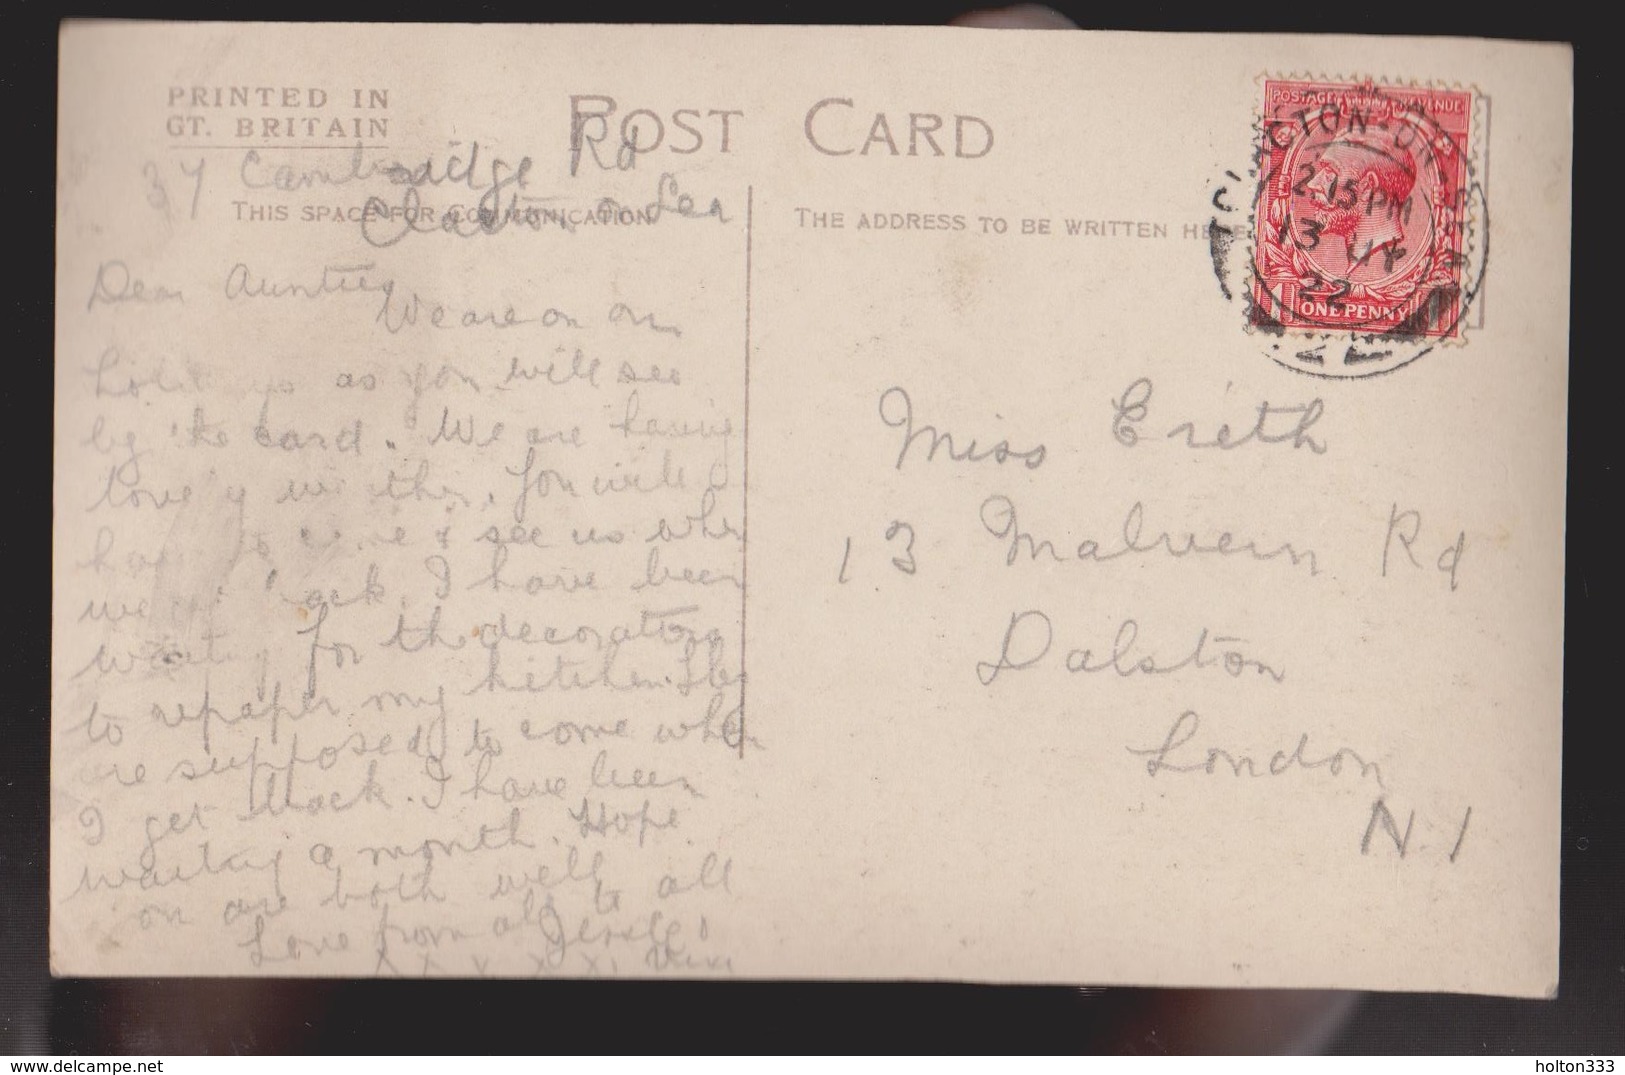 PRINTED IN
GT. BRITAIN
POST CARD
37 Cambridge Rd
Clacton on Sea
THIS SPACE FOR COMMUNICATION
Dear Auntie
We are on our
holidays as you will see
by the card. We are having
lovely weather. You will
have to come & see us when
we get back. I have been
waiting for the decorators
to repaper my kitchen. They
are supposed to come when
I get back. I have been
waiting a month. Hope
you are both well
Love from all to all
Jessie
x x x x x
THE ADDRESS TO BE WRITTEN HERE
POSTAGE REVENUE
ONE PENNY
CLACTON-ON-SEA
2.15 PM
13
22
Miss Erith
13 Malvern Rd
Dalston
London
N. 1
holton333